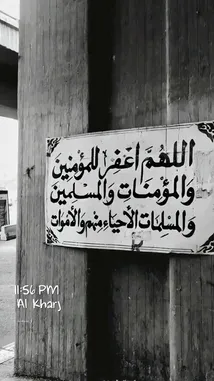 اللهُمَّ اغفِر للمؤمنين
والمؤمنَات والمسْلمينَ
والمسلمات الأحيَاء منهم والأموات
11:56 PM
Al Kharj